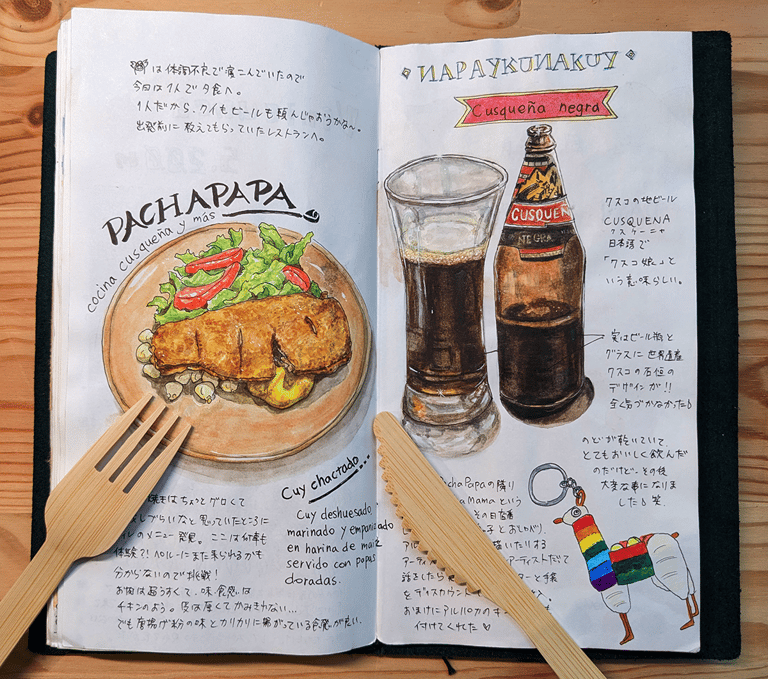 は体調不良で寝こんでいたので
今日は1人で夕食へ。
1人だから、クイもビールも頼んじゃおうかな〜。
出発前に教えてもらっていたレストランへ。
PACHAPAPA
cocina cusqueña y más
Cuy chactado...
Cuy deshuesado,
marinado y empanizado
en harina de maíz
servido con papas
doradas.
焼きはちょっとグロくて
しづらいなと思っていたところに
のメニュー発見。ここは何事も
体験?! ペルーにまた来られるかも
分からないので挑戦!
お肉は超うすくて、味、食感は
チキンのよう。皮は厚くてかみきれない...
でも唐揚げ粉の味とカリカリに揚がっている食感が良い。
NAPAYKUNAKUY
Cusqueña negra
CUSQUEÑ
NEGRA
クスコの地ビール
CUSQUENA
クスケーニャ
日本語で
「クスコ娘」と
いう意味らしい。
実はビール瓶と
グラスに世界遺産
クスコの石垣の
デザインが!!
全く気づかなかった
のどが乾いていて、
とてもおいしく飲んだ
のだけど…その後
大変な事になりま
した 笑
PachaPapaの隣り
Mamaという
その日店番
子とおしゃべり。
アル 描いたりする
アーティ アーティストだて
話をしたら ターと手袋
をディスカウント
おまけにアルパカのキ も
付けてくれた♡